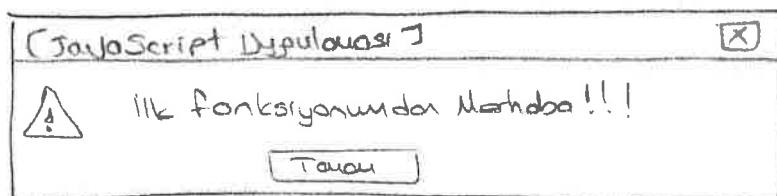 [JavaScript Uygulaması]
X
!
ilk fonksiyonumdan Merhaba!!!
Tamam